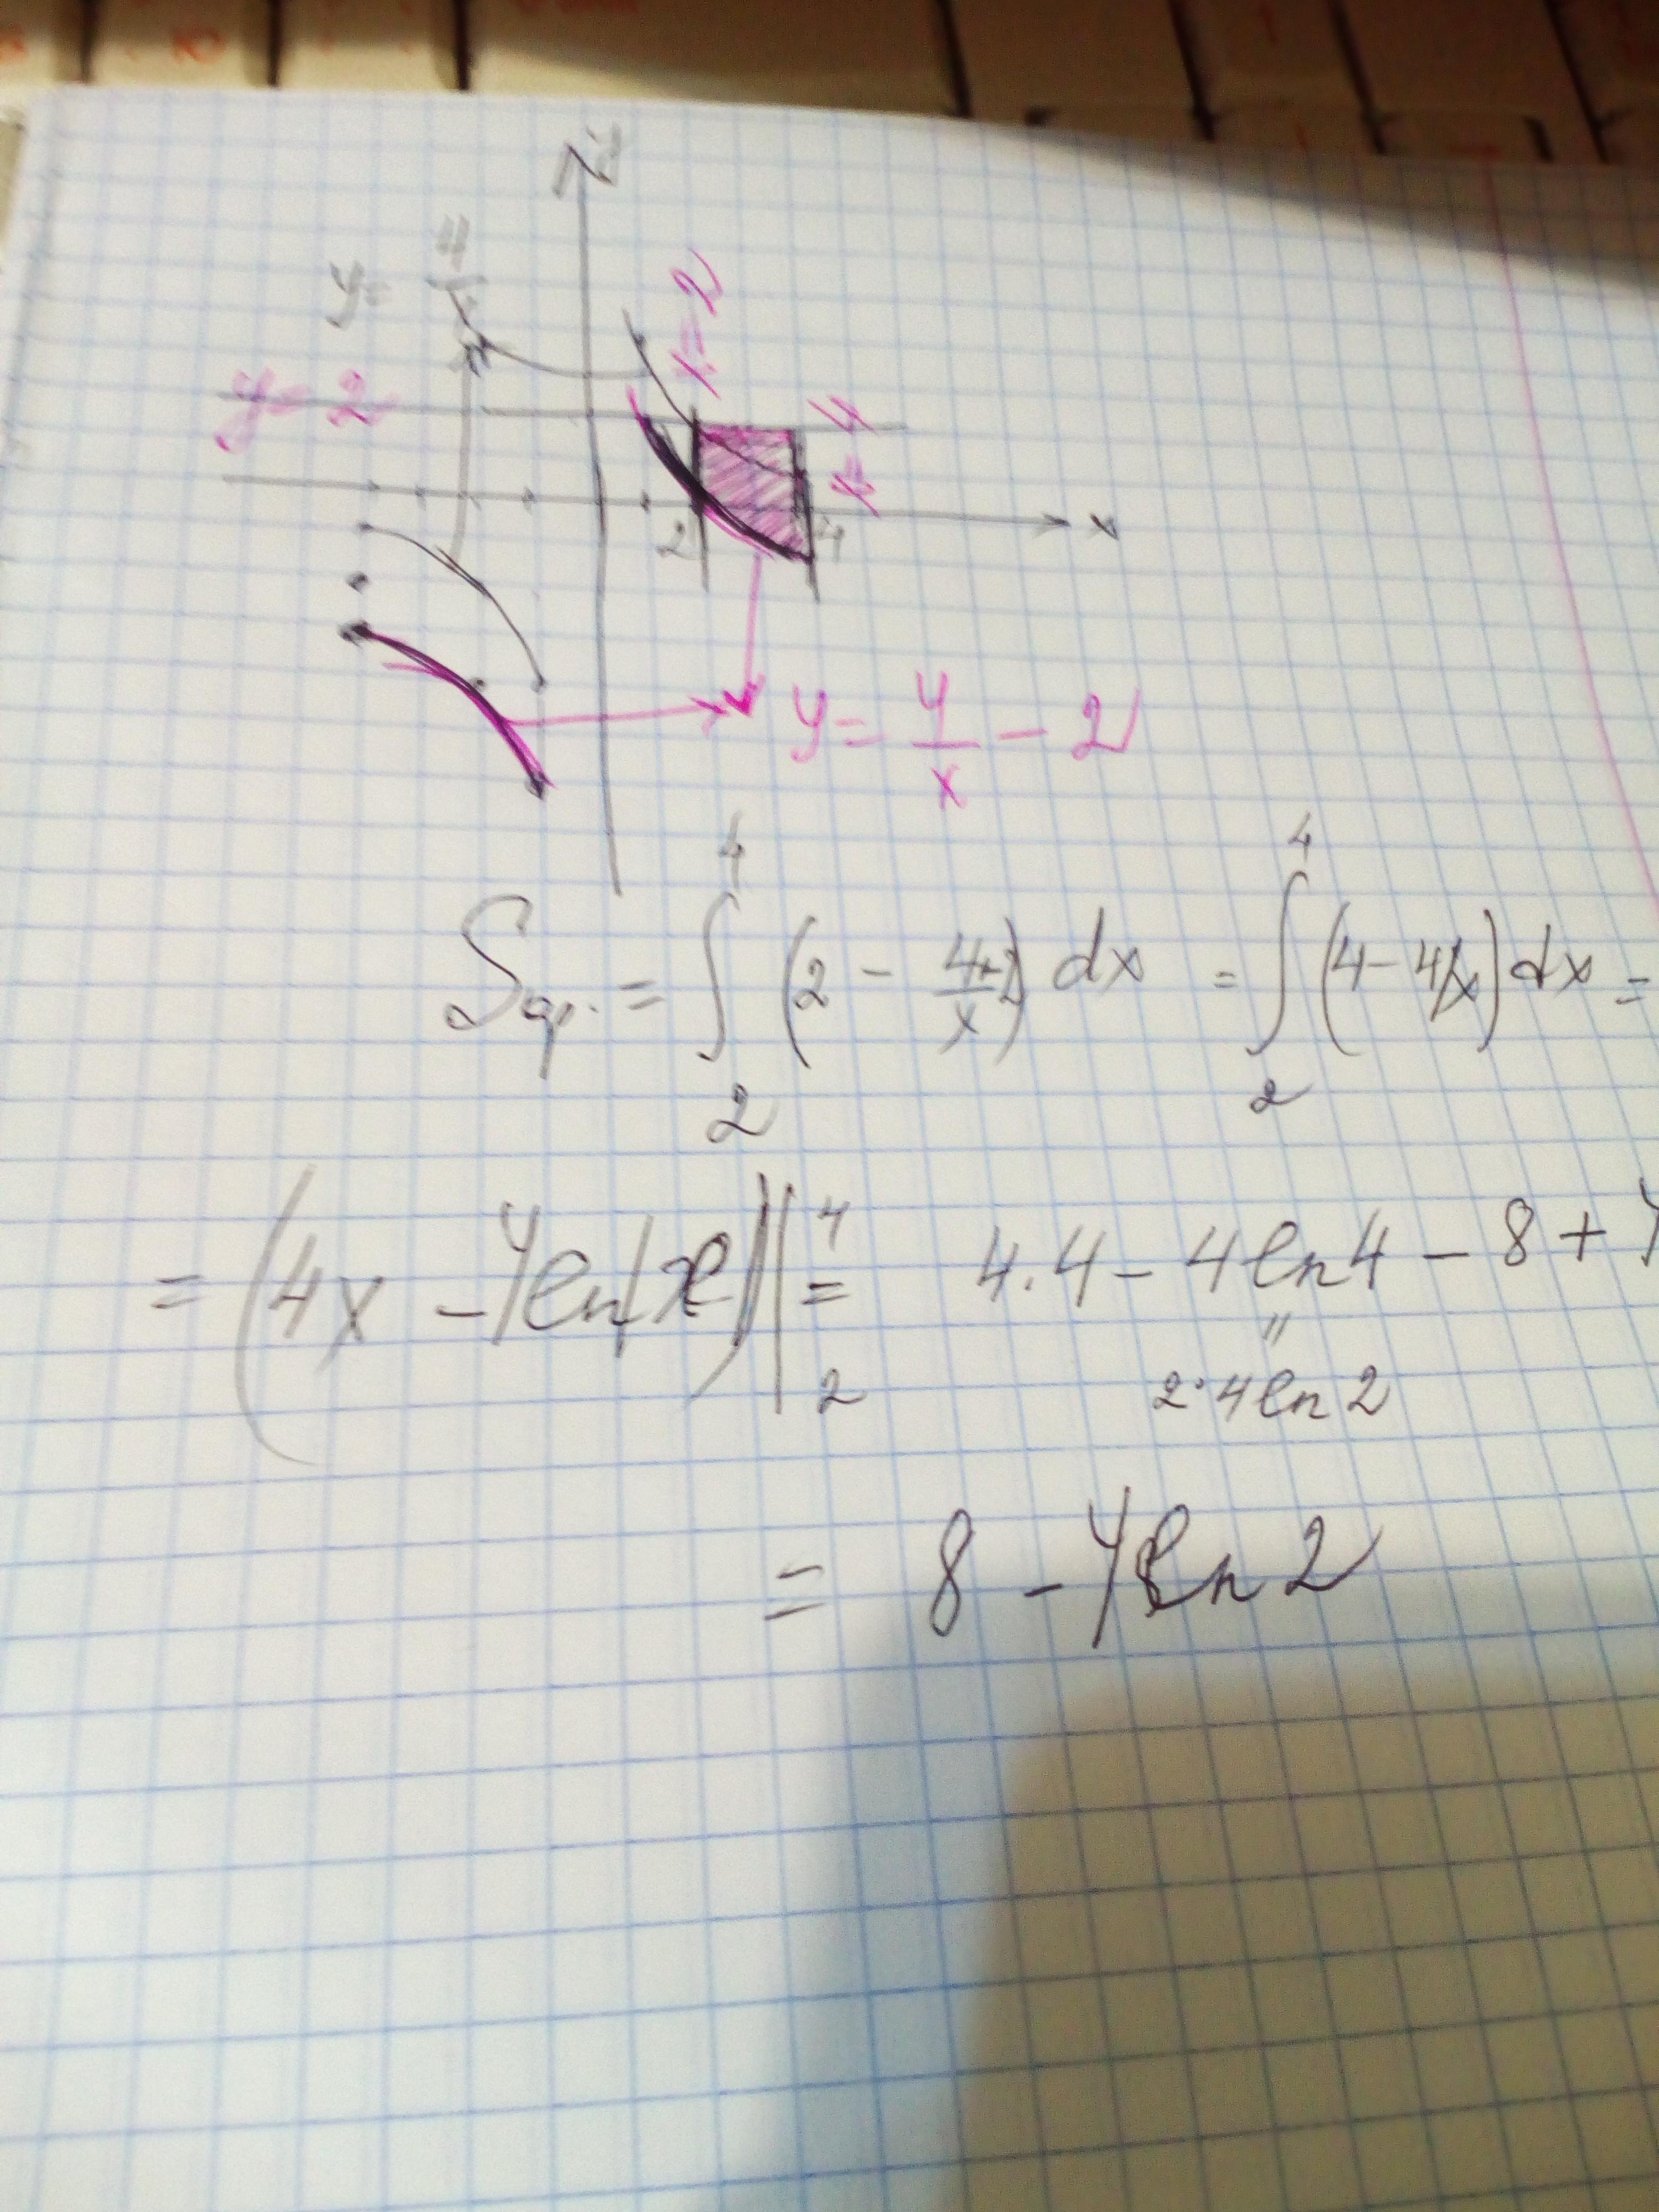 y = 4/x
y = 2
x = 2
x = 4
2 4 x
y = 4/x - 2
Sφ. = ∫₂⁴ (2 - 4/x + 2) dx = ∫₂⁴ (4 - 4/x) dx =
= (4x - 4ln|x|)|₂⁴ = 4·4 - 4ln4 - 8 + 4
"
2·4ln2
= 8 - 4ln2